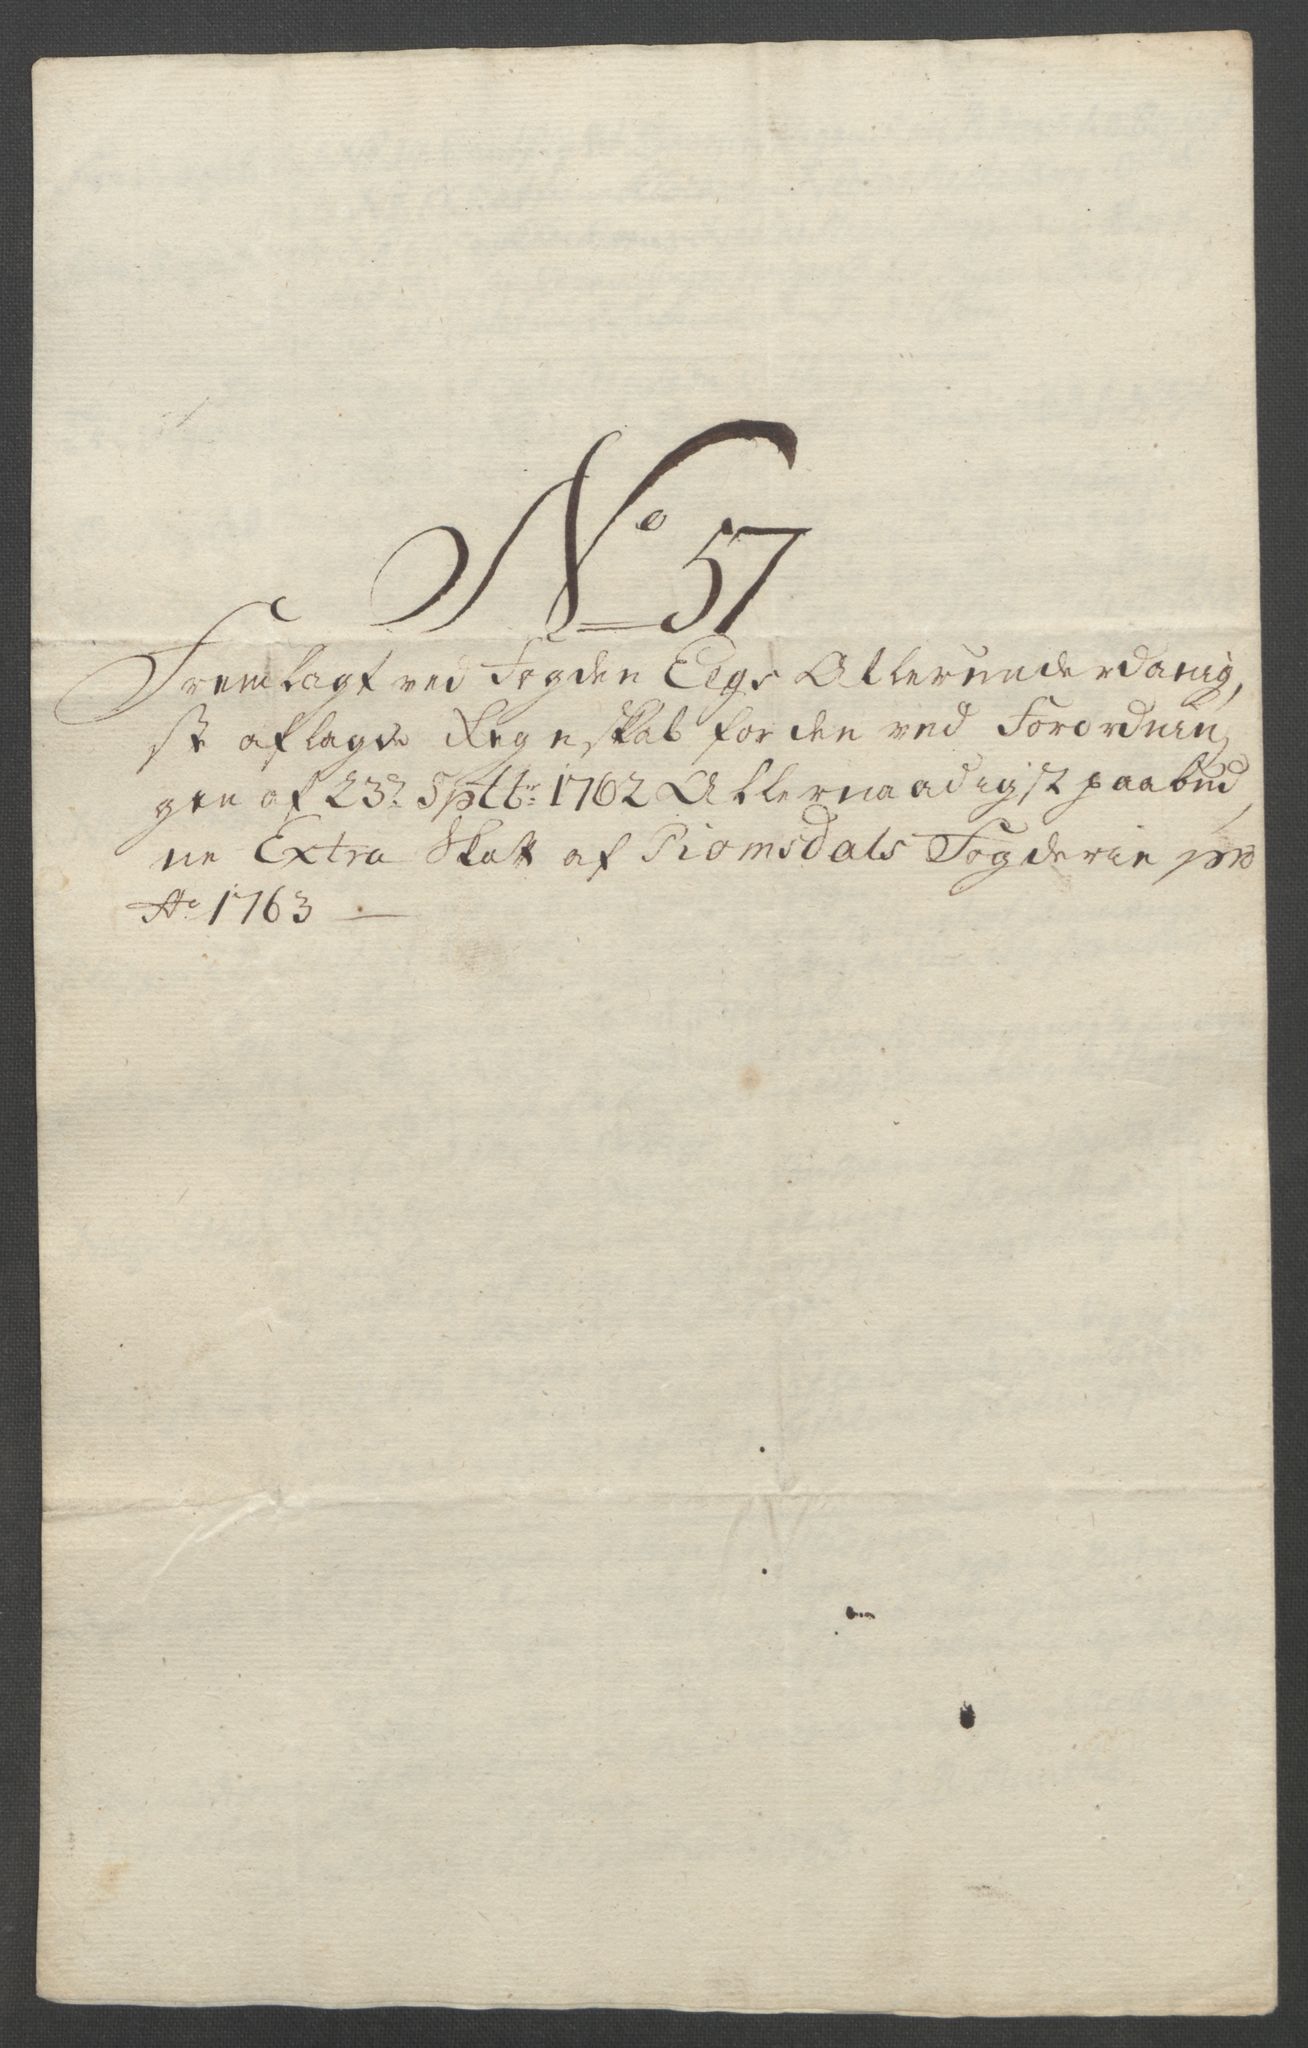 No 57
Fremlagt ved Fogden Eegs Allerunderdanig,
st aflagde Regnskab for den ved Forordnin,
gen af 23de Sptbr: 1762 Allernaadigst paabud,
ne Extra Skatt af Romsdals Fogderie pro
Ao 1763 —